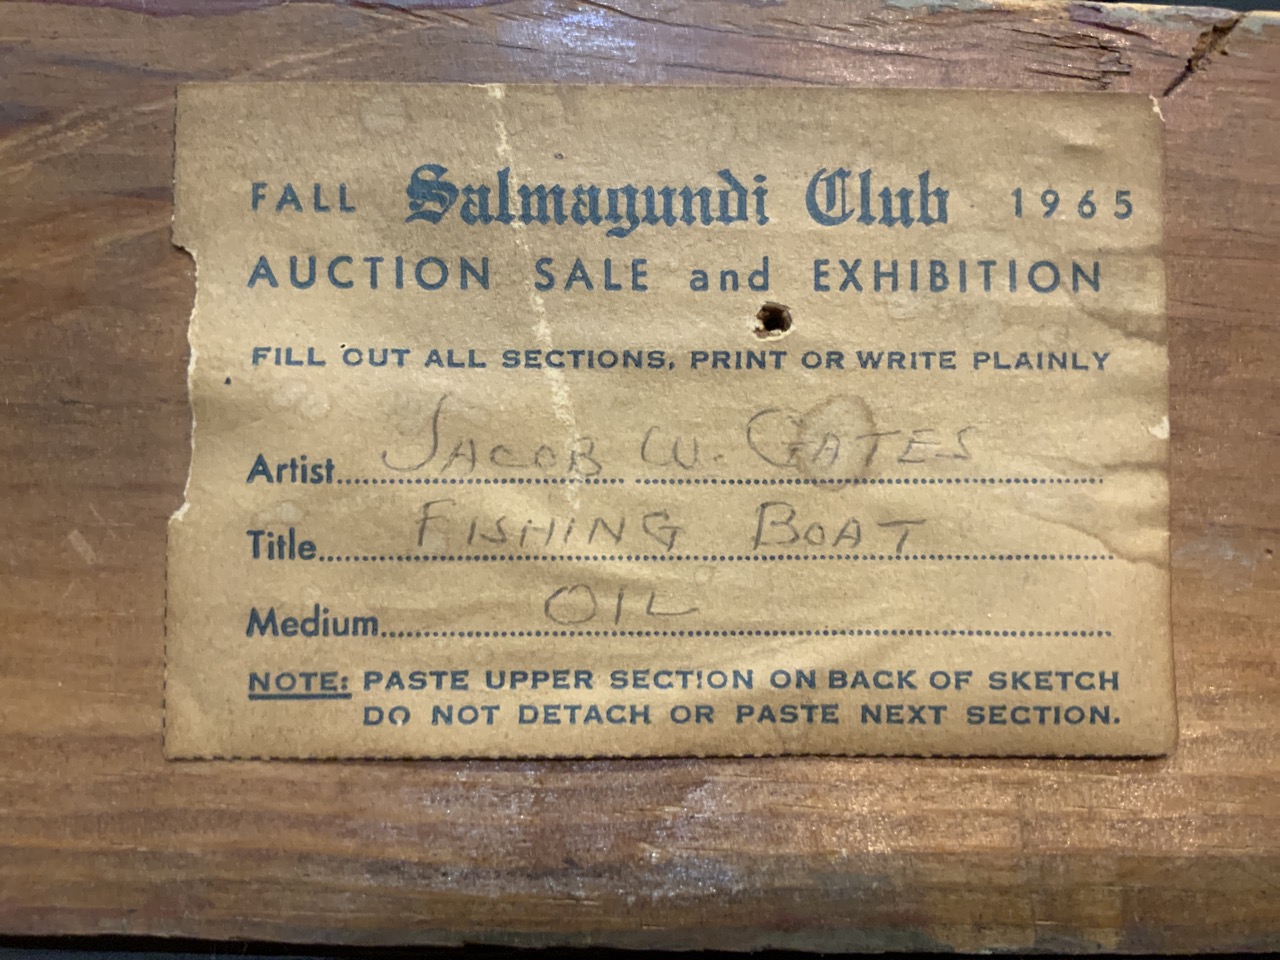 FALL Salmagundi Club 1965
AUCTION SALE and EXHIBITION
FILL OUT ALL SECTIONS, PRINT OR WRITE PLAINLY
Artist JACOB W. GATES
Title FISHING BOAT
Medium OIL
NOTE: PASTE UPPER SECTION ON BACK OF SKETCH
DO NOT DETACH OR PASTE NEXT SECTION.